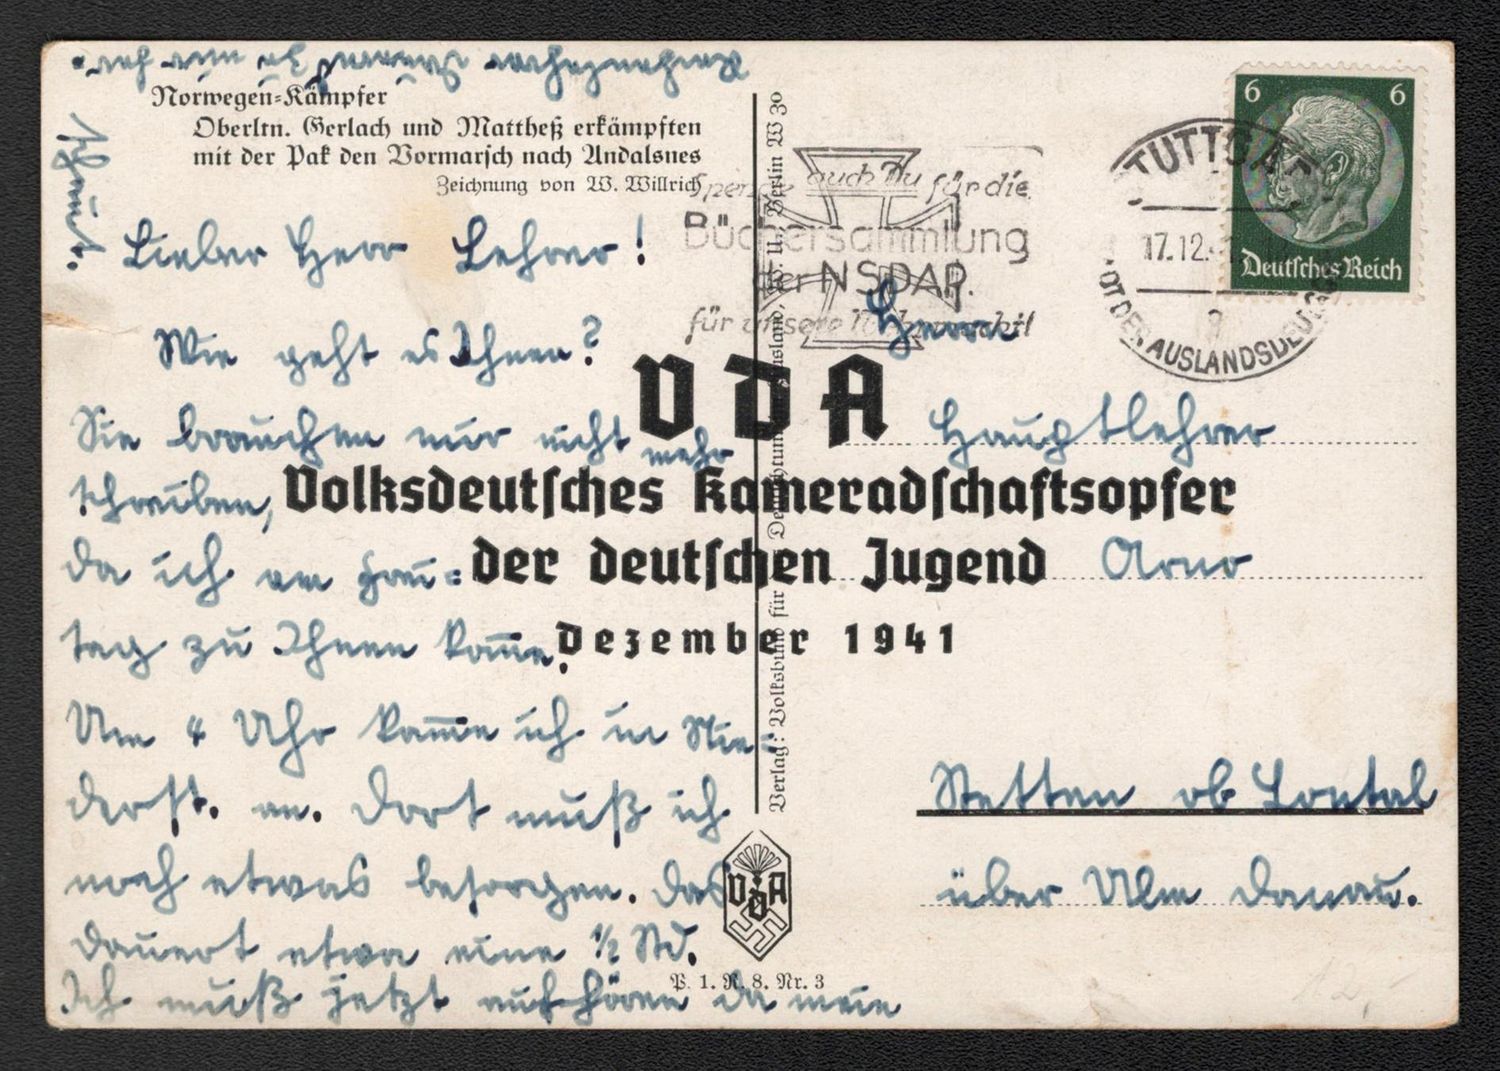 Norwegen-Kämpfer
Oberltn. Gerlach und Mattheß erkämpften
mit der Pak den Vormarsch nach Andalsnes
Zeichnung von W. Willrich
Lieber Herr Lehrer!
Wie geht es Ihnen?
Sie brauchen mir nicht mehr
schreiben,
da ich am Frei=
tag zu Ihnen kom̅e.
Um 4 Uhr kom̅e ich in Nie=
derst. an. Dort muß ich
noch etwas besorgen. Das
dauert etwa eine ½ Std.
Ich muß jetzt aufhören da mein
VDA
Volksdeutsches Kameradschaftsopfer
der deutschen Jugend
Dezember 1941
Spende auch Du für die
Büchersammlung
der NSDAP.
für unsere Wehrmacht!
STUTTGART
17.12.
STADT DER AUSLANDSDEUTSCHEN
6 6
Deutsches Reich
Herrn
Hauptlehrer
Arno
Stetten ob Lontal
über Ulm Donau.
Verlag: Volksbund für d. Deutschtum i. Ausland, Berlin W 30
VDA
P. 1. R. 8. Nr. 3